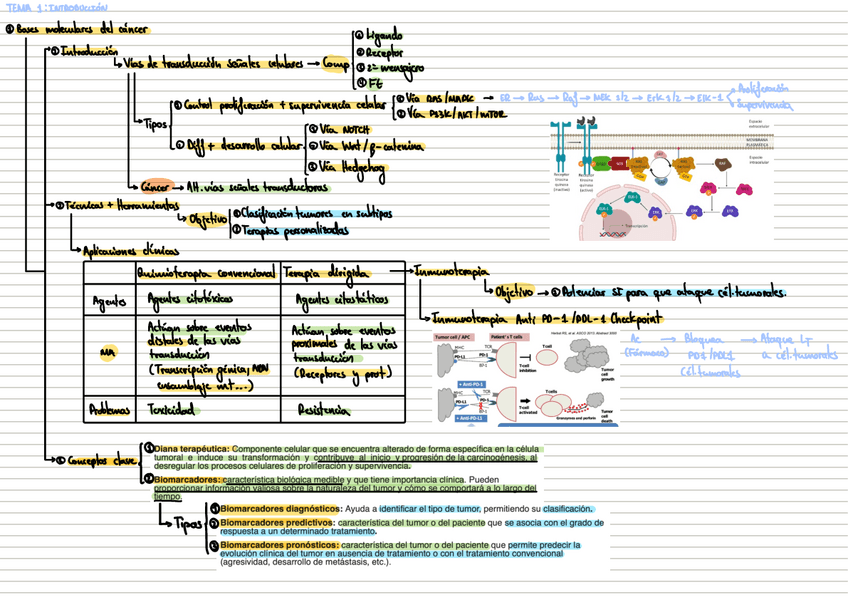 TEMA 1: INTRODUCCIÓN
① Bases moleculares del cáncer
① Introducción
Vías de transducción señales celulares → Comp
① Ligando
② Receptor
③ 2º mensajero
④ FT
Tipos
① Control proliferación + supervivencia celular
① Vía RAS/MAPK → ER → Ras → Raf → MEK 1/2 → Erk 1/2 → Elk-1
Proliferación
Supervivencia
② Vía PI3K/AKT/mTOR
② Diff + desarrollo celular
① Vía NOTCH
② Vía Wnt/β-catenina
③ Vía Hedgehog
Cáncer → Alt. vías señales transductoras
Espacio extracelular
MEMBRANA PLASMÁTICA
Espacio intracelular
Transcripción
② Técnicas + Herramientas
Objetivo
① Clasificación tumores en subtipos
② Terapias personalizadas
Aplicaciones clínicas
Quimioterapia convencional
Terapia dirigida
Agentes
Agentes citotóxicos
Agentes citostáticos
MA
Actúan sobre eventos distales de las vías transducción
Actúan sobre eventos proximales de las vías transducción
(Receptores y prot.)
Problemas
Toxicidad
Resistencia
Inmunoterapia
Objetivo → ① Potenciar SI para que ataque cél. tumorales.
Inmunoterapia Anti PD-1/PDL-1 Checkpoint
Tumor cell / APC
Patient's T cells
MHC
TCR
PD-L1
PD-1
T cell inhibition
T cell
Tumor cell growth
+ Anti-PD-1
MHC
TCR
PD-L1
PD-1
+ Anti-PD-L1
T cell activated
T cells
Granzymes and perforin
Tumor cell death
Ac (Fármaco) → Bloquea PD1/PDL1 cél. tumorales → Ataque LT a cél. tumorales
Conceptos clave
① Diana terapéutica: Componente celular que se encuentra alterado de forma específica en la célula
tumoral e induce su transformación y contribuye al inicio y progresión de la carcinogénesis, al
desregular los procesos celulares de proliferación y supervivencia.
② Biomarcadores: característica biológica medible y que tiene importancia clínica. Pueden
proporcionar información valiosa sobre la naturaleza del tumor y cómo se comportará a lo largo del
tiempo.
Tipos
① Biomarcadores diagnósticos: Ayuda a identificar el tipo de tumor, permitiendo su clasificación.
② Biomarcadores predictivos: característica del tumor o del paciente que se asocia con el grado de
respuesta a un determinado tratamiento.
③ Biomarcadores pronósticos: característica del tumor o del paciente que permite predecir la
evolución clínica del tumor en ausencia de tratamiento o con el tratamiento convencional
(agresividad, desarrollo de metástasis, etc.).